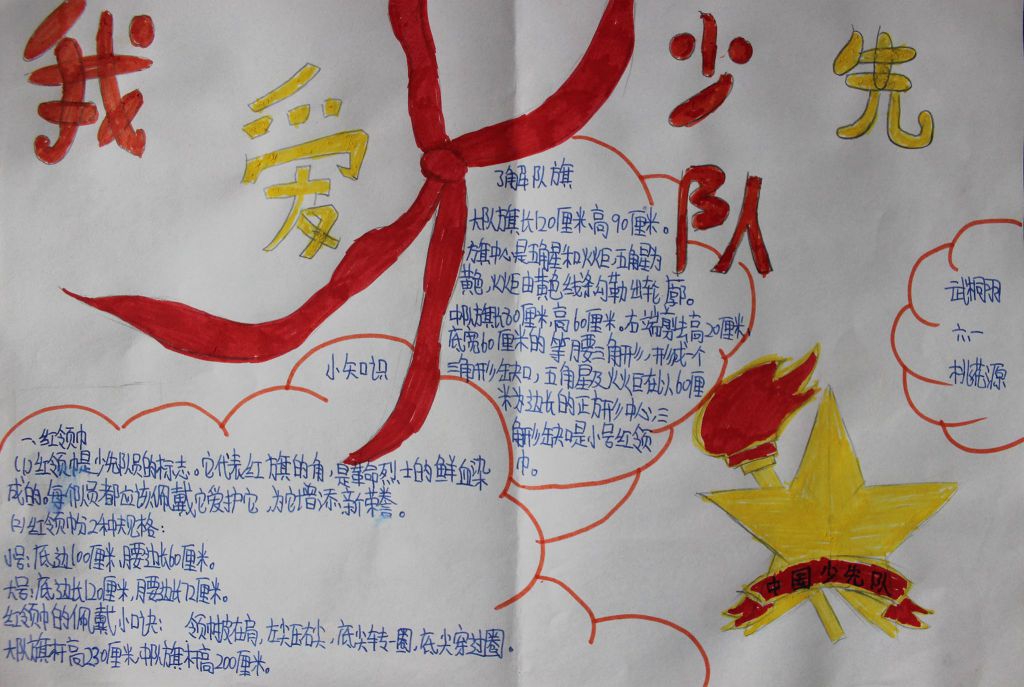 我爱少先队
了解队旗
大队旗长120厘米,高90厘米。
旗中心是五角星和火炬,五角星为
黄色,火炬由黄色线条勾勒出轮廓。
中队旗长80厘米,高60厘米。右端剪去高20厘米,
底宽60厘米的等腰三角形,形成一个
三角形缺口,五角星及火炬在以60厘
米为边长的正方形中心,三
角形缺口是小号红领
巾。
小知识
一、红领巾
(1)红领巾是少先队员的标志。它代表红旗的角,是革命烈士的鲜血染
成的。每个队员都应该佩戴它爱护它,为它增添新荣誉。
(2)红领巾分2种规格:
小号:底边长100厘米,腰边长60厘米。
大号:底边长120厘米,腰边长72厘米。
红领巾的佩戴小口诀: 领巾披在肩,左尖压右尖,底尖转一圈,底尖穿过圈。
大队旗杆高230厘米,中队旗杆高200厘米。
六一
桃花源
中国少先队